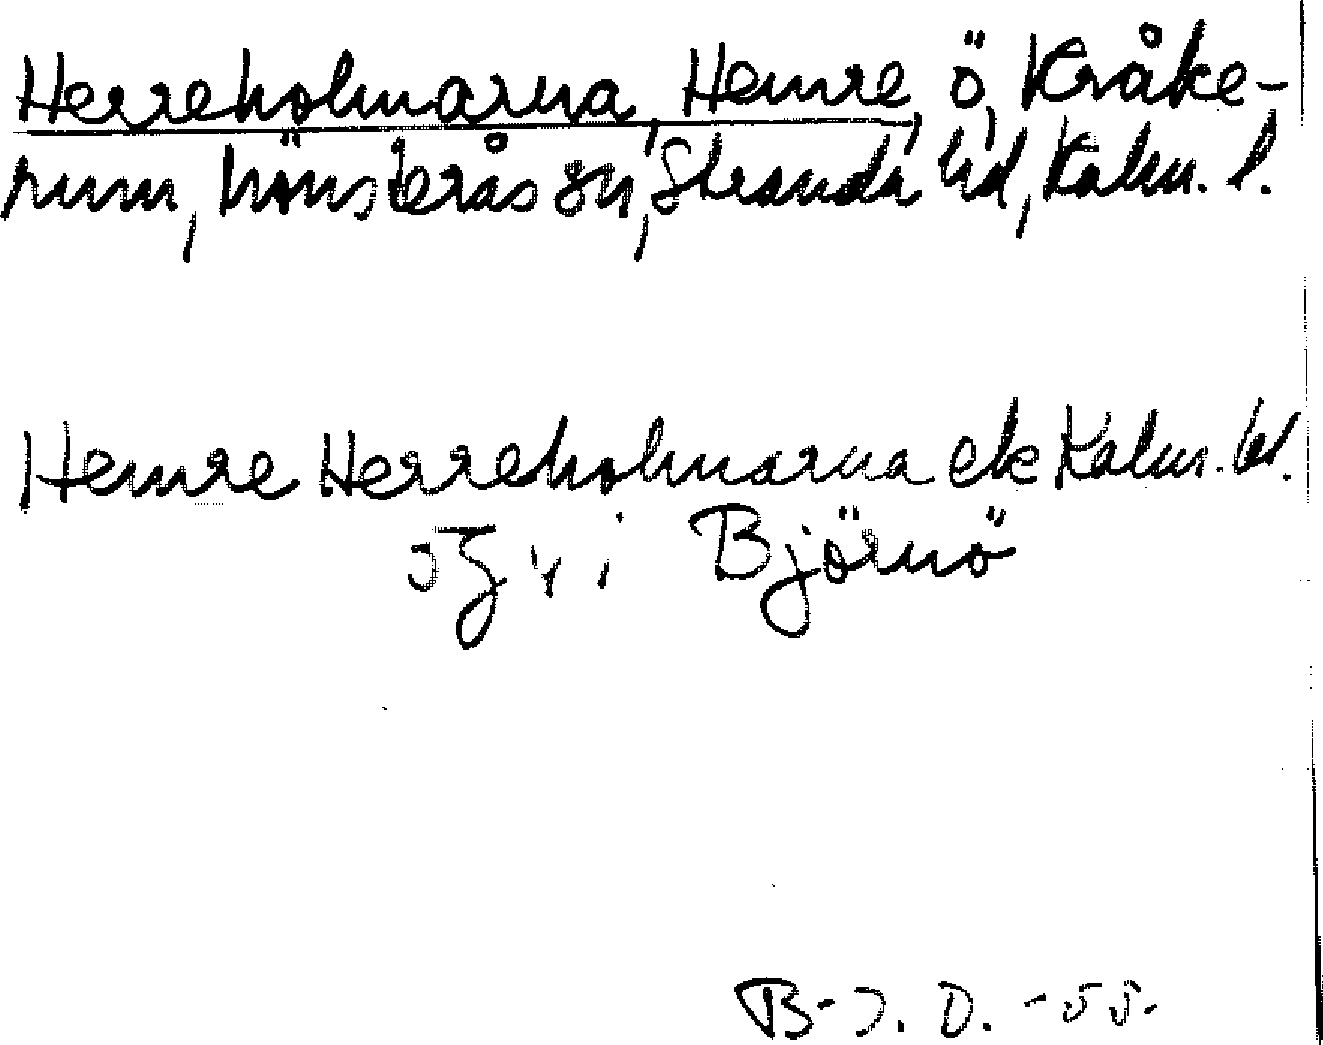 Herreholmarna, Hemre, ö, Kråke-
rum, Mönsterås sn, Stranda hd, Kalm. l.
Hemre Herreholmarna ek Kalm. l.
Björnö
B-J. D. -55-